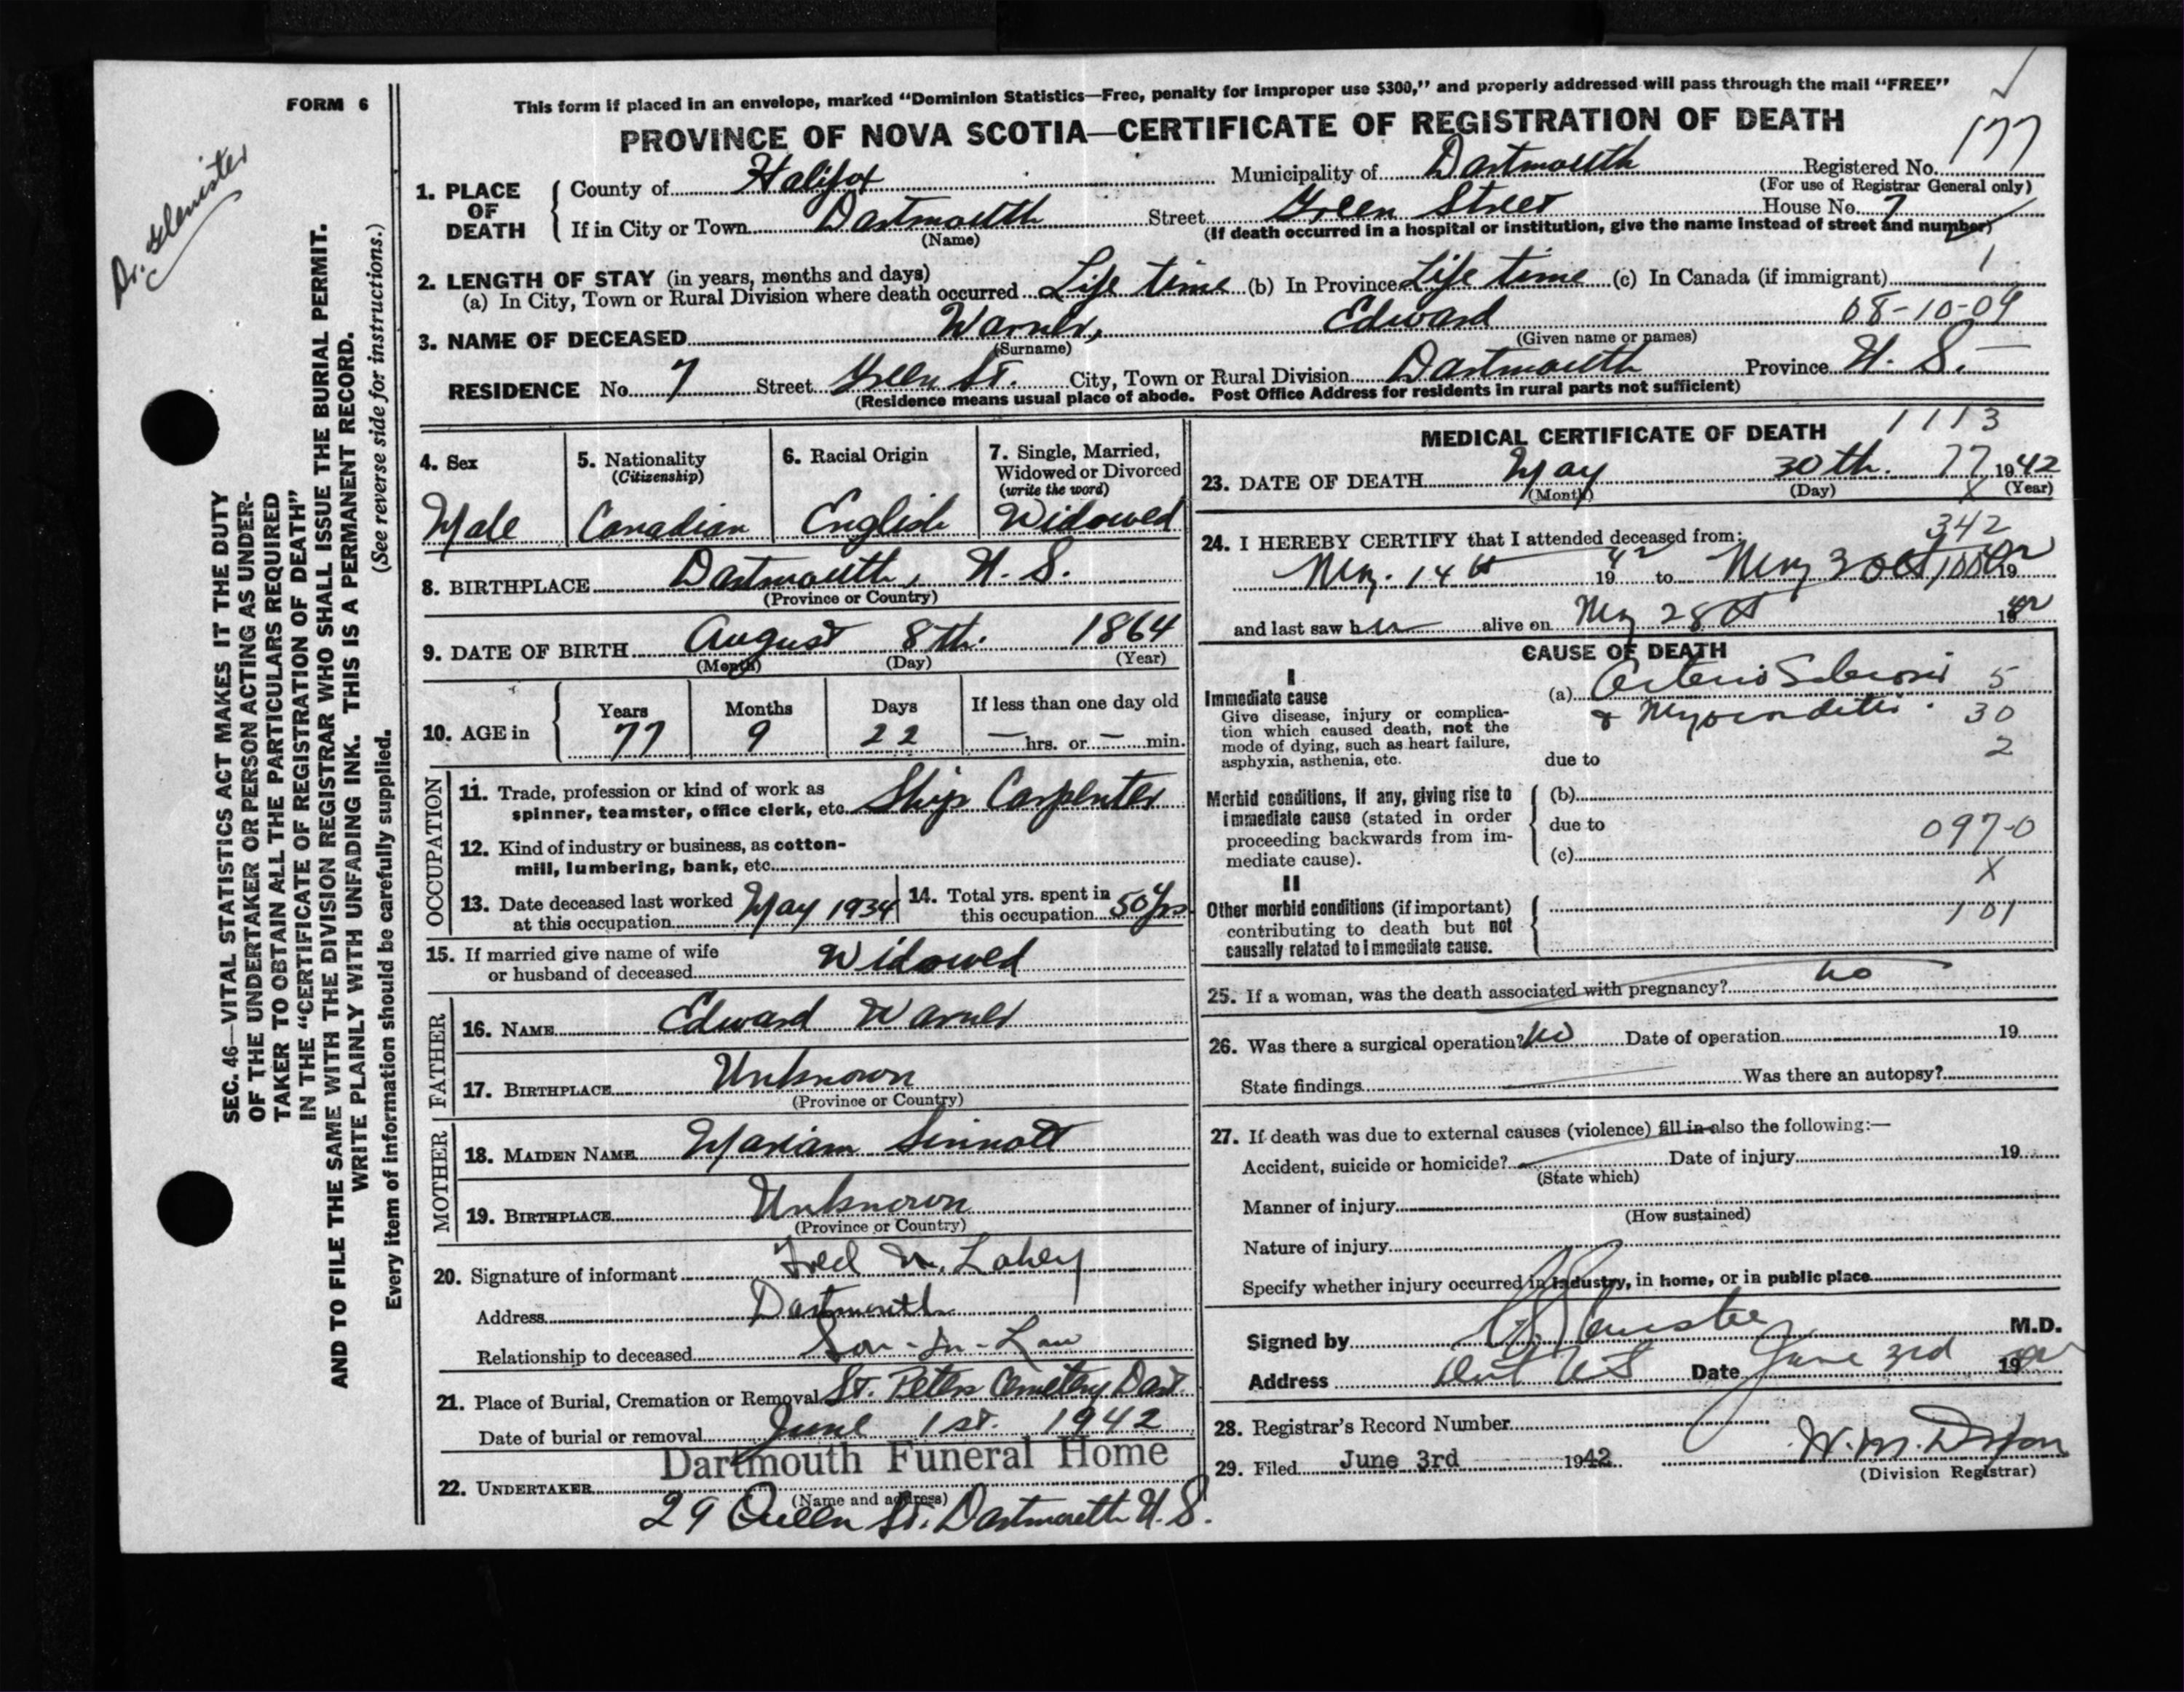 FORM 6
Dr. Glenister
SEC. 46—VITAL STATISTICS ACT MAKES IT THE DUTY
OF THE UNDERTAKER OR PERSON ACTING AS UNDER-
TAKER TO OBTAIN ALL THE PARTICULARS REQUIRED
IN THE "CERTIFICATE OF REGISTRATION OF DEATH"
AND TO FILE THE SAME WITH THE DIVISION REGISTRAR WHO SHALL ISSUE THE BURIAL PERMIT.
WRITE PLAINLY WITH UNFADING INK. THIS IS A PERMANENT RECORD.
Every item of information should be carefully supplied. (See reverse side for instructions.)
This form if placed in an envelope, marked "Dominion Statistics—Free, penalty for improper use $300," and properly addressed will pass through the mail "FREE"
PROVINCE OF NOVA SCOTIA—CERTIFICATE OF REGISTRATION OF DEATH
1. PLACE OF DEATH
County of Halifax Municipality of Dartmouth Registered No. 177
(For use of Registrar General only)
If in City or Town Dartmouth Street Green Street House No. 7
(Name) (If death occurred in a hospital or institution, give the name instead of street and number)
2. LENGTH OF STAY (in years, months and days) 1
(a) In City, Town or Rural Division where death occurred Life time (b) In Province Life time (c) In Canada (if immigrant)
3. NAME OF DECEASED Warner, Edward 08-10-09
(Surname) (Given name or names)
RESIDENCE No. 7 Street Green St. City, Town or Rural Division Dartmouth Province N. S.
(Residence means usual place of abode. Post Office Address for residents in rural parts not sufficient)
4. Sex
Male
5. Nationality
(Citizenship)
Canadian
6. Racial Origin
English
7. Single, Married,
Widowed or Divorced
(write the word)
Widowed
8. BIRTHPLACE Dartmouth, N. S.
(Province or Country)
9. DATE OF BIRTH August 8th. 1864
(Month) (Day) (Year)
10. AGE in
Years Months Days If less than one day old
77 9 22 — hrs. or — min.
OCCUPATION
11. Trade, profession or kind of work as
spinner, teamster, office clerk, etc. Ship Carpenter
12. Kind of industry or business, as cotton-
mill, lumbering, bank, etc.
13. Date deceased last worked
at this occupation May 1934
14. Total yrs. spent in
this occupation 50 yrs
15. If married give name of wife
or husband of deceased Widowed
FATHER
16. NAME Edward Warner
17. BIRTHPLACE Unknown
(Province or Country)
MOTHER
18. MAIDEN NAME Mariam Sinnott
19. BIRTHPLACE Unknown
(Province or Country)
20. Signature of informant Fred M. Lahey
Address Dartmouth
Relationship to deceased Son-In-Law
21. Place of Burial, Cremation or Removal St. Peters Cemetery Dart.
Date of burial or removal June 1st. 1942
Dartmouth Funeral Home
22. UNDERTAKER
(Name and address)
29 Queen St. Dartmouth N.S.
1113
MEDICAL CERTIFICATE OF DEATH
23. DATE OF DEATH May 30th. 77 1942
(Month) (Day) X (Year)
342
24. I HEREBY CERTIFY that I attended deceased from:
May. 14th 1942 to May 30th 1942
and last saw alive on May 28th 1942
CAUSE OF DEATH
I
Immediate cause
Give disease, injury or complica-
tion which caused death, not the
mode of dying, such as heart failure,
asphyxia, asthenia, etc.
(a) Arterio Sclerosis 5
& Myocarditis. 30
2
due to
Morbid conditions, if any, giving rise to
immediate cause (stated in order
proceeding backwards from im-
mediate cause).
(b)
due to
097-0
(c)
X
II
Other morbid conditions (if important)
contributing to death but not
causally related to immediate cause.
101
25. If a woman, was the death associated with pregnancy? no
26. Was there a surgical operation? No Date of operation 19
State findings Was there an autopsy?
27. If death was due to external causes (violence) fill in also the following:—
Accident, suicide or homicide? Date of injury 19
(State which)
Manner of injury
(How sustained)
Nature of injury
Specify whether injury occurred in industry, in home, or in public place
Signed by Glenister M.D.
Address Dart N S Date June 3rd 1942
28. Registrar's Record Number
29. Filed June 3rd 1942 W. M. Dixon
(Division Registrar)